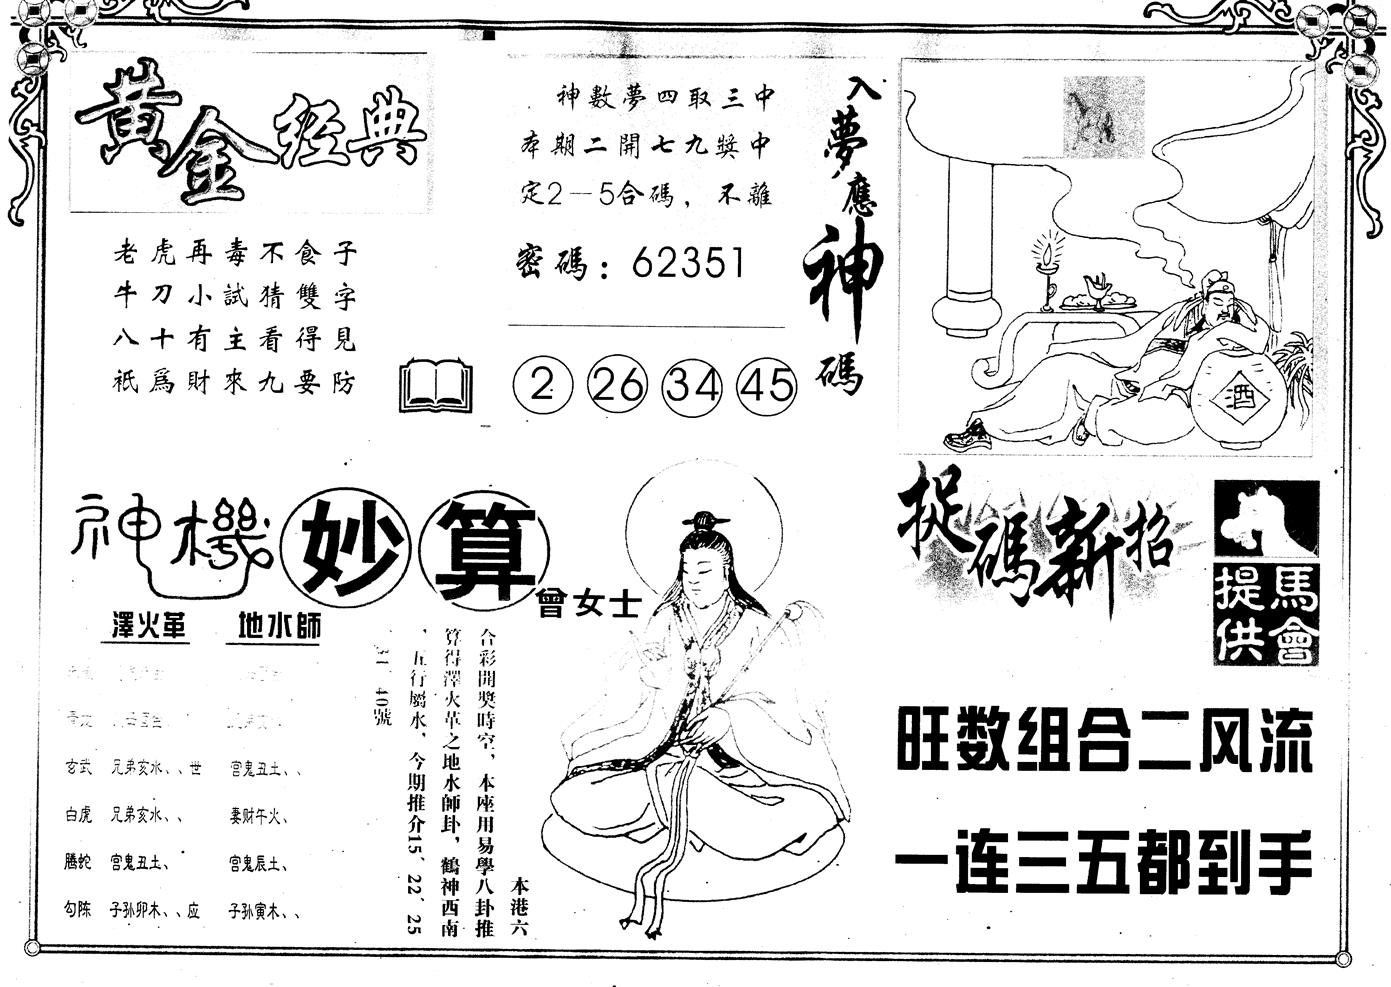 黃金經典
老虎再毒不食子
牛刀小試猜雙字
八十有主看得見
衹爲財來九要防
神數夢四取三中
本期二開七九獎中
定2－5合碼，不離
密碼：62351
2 26 34 45
入夢應神碼
酒
神機妙算
曾女士
澤火革 地水師
玄武 兄弟亥水、、世 宫鬼丑土、、
白虎 兄弟亥水、、 妻财午火、
腾蛇 宫鬼丑土、 宫鬼辰土、
勾陈 子孙卯木、、应 子孙寅木、、
本港六
合彩開獎時空，本座用易學八卦推
算得澤火革之地水師卦，鶴神西南
，五行屬水，今期推介15、22、25
31 40號
捉碼新招
馬會
提供
旺数组合二风流
一连三五都到手